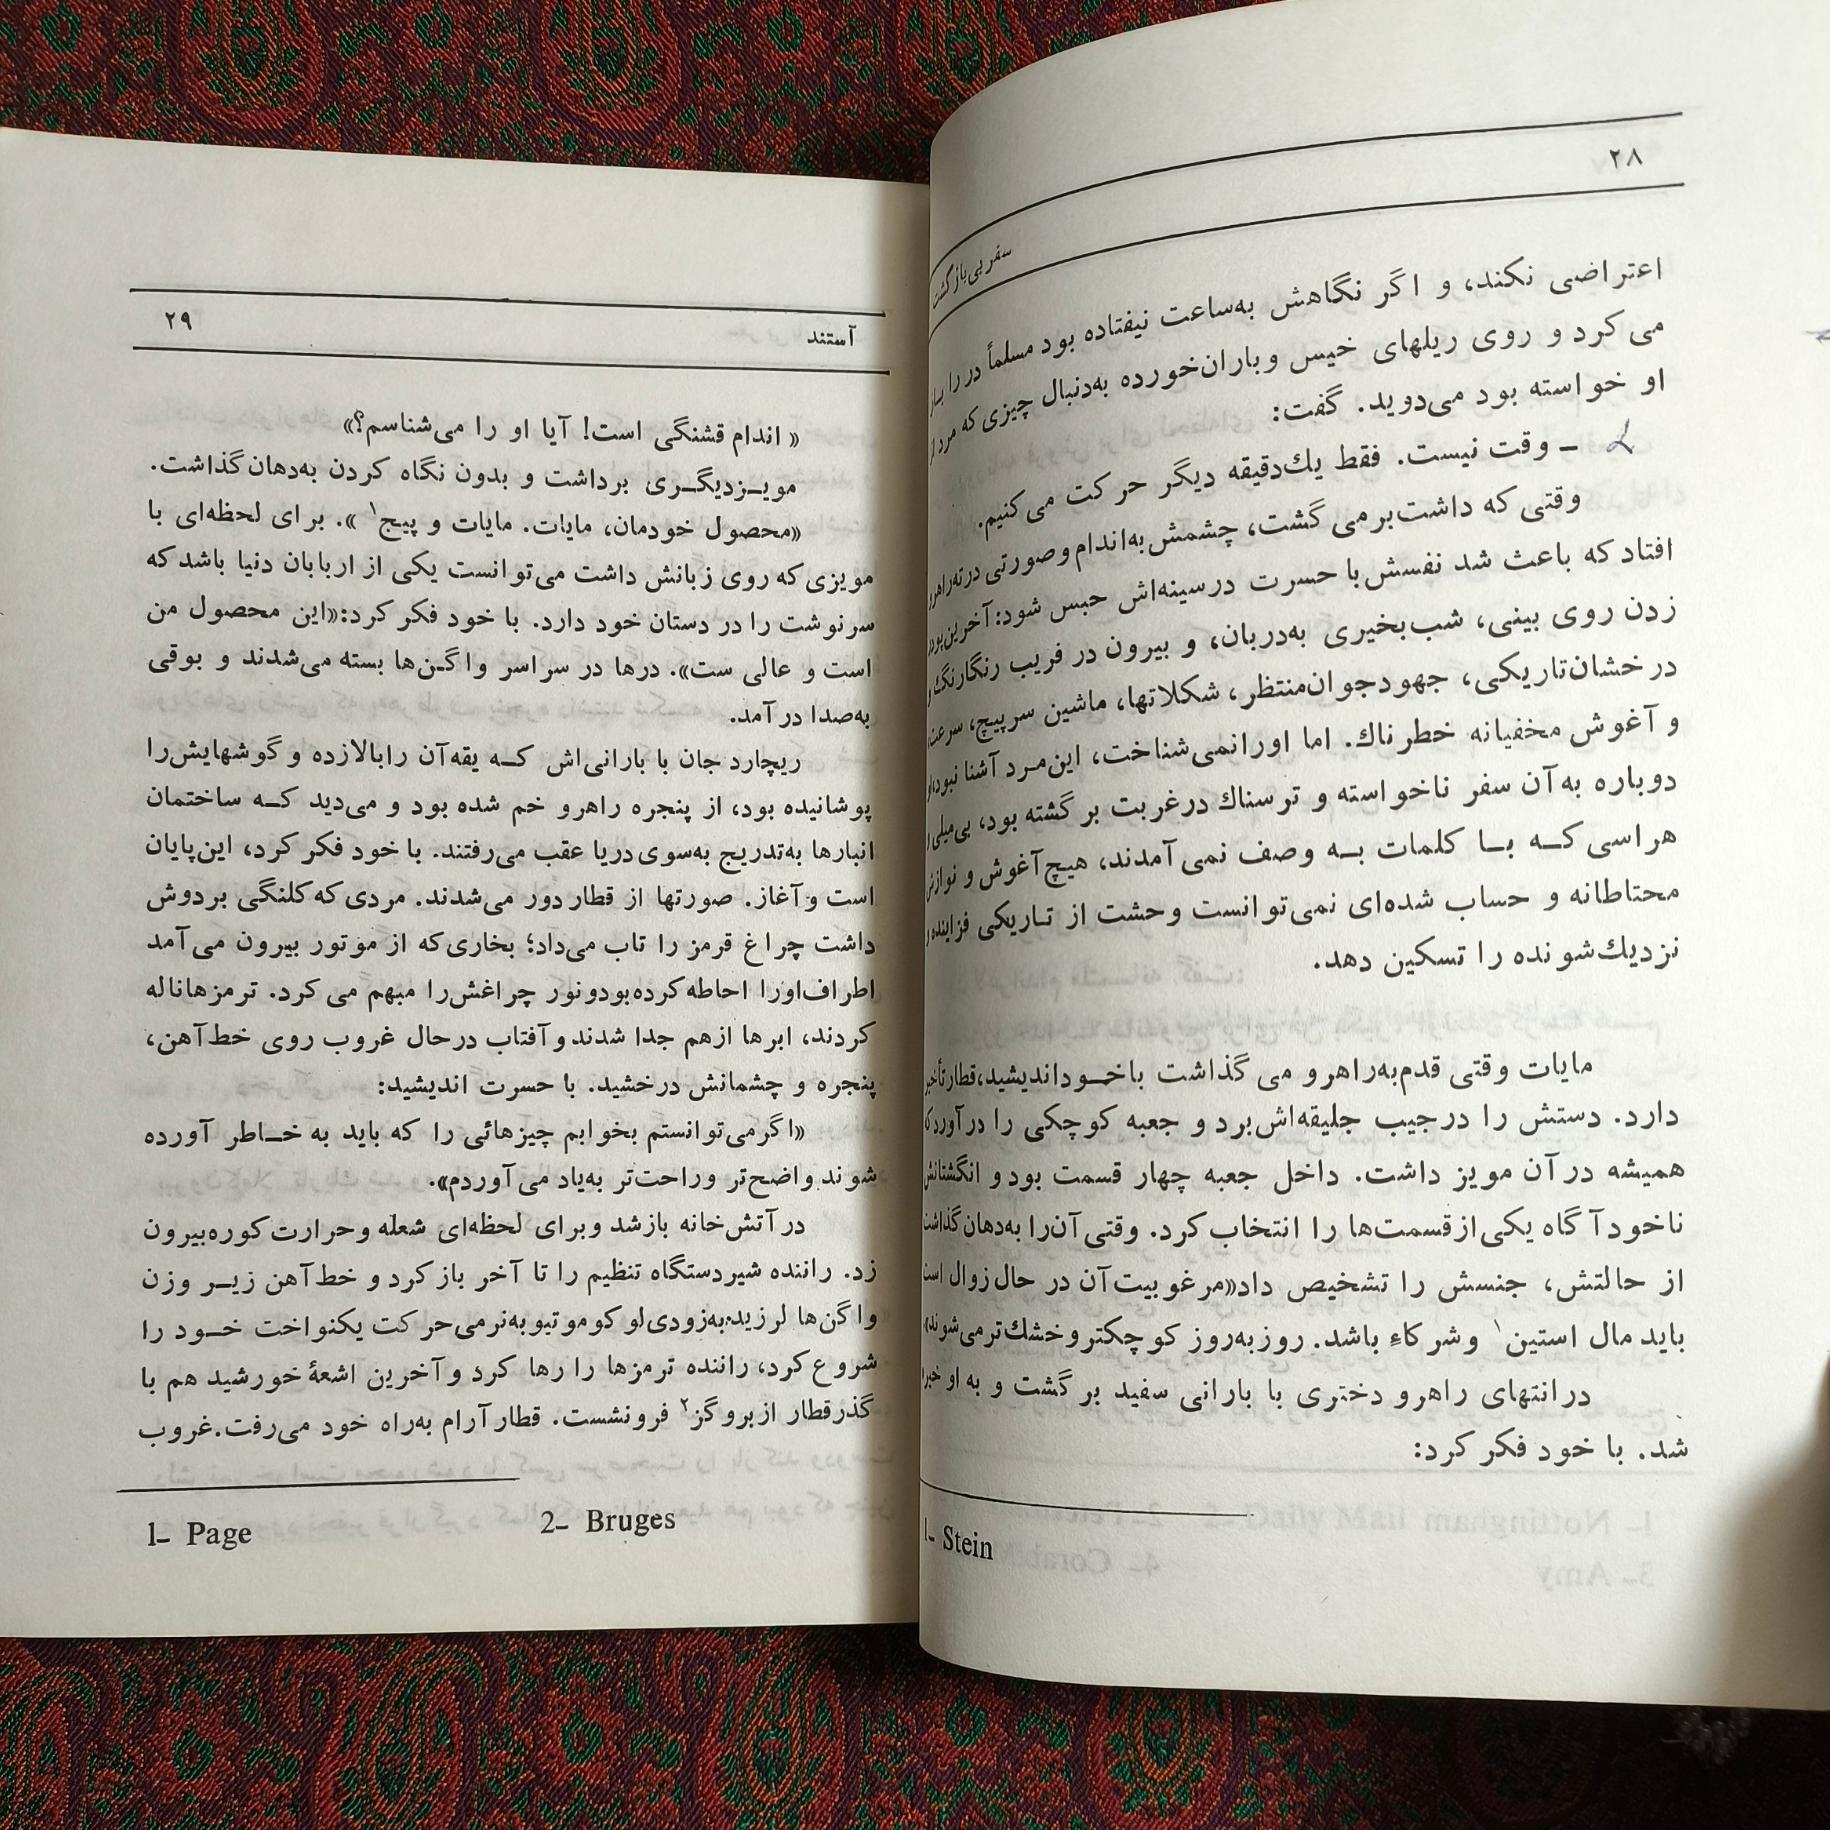 ۲۸
سفر بی‌بازگشت
اعتراضی نکند، و اگر نگاهش به‌ساعت نیفتاده بود مسلماً در را باز
می‌کرد و روی ریلهای خیس و باران‌خورده به‌دنبال چیزی که مرد از
او خواسته بود می‌دوید. گفت:
– وقت نیست. فقط یك‌دقیقه دیگر حرکت می‌کنیم.
وقتی که داشت‌برمی‌گشت، چشمش‌به‌اندام و صورتی در ته‌راهرو
افتاد که باعث شد نفسش با حسرت در سینه‌اش حبس شود: آخرین‌پودر
زدن روی بینی، شب‌بخیری به‌دربان، و بیرون در فریب رنگارنگ
درخشان‌تاریکی، جهود‌جوان‌منتظر، شکلاتها، ماشین سرپیچ، سرعت،
و آغوش مخفیانه خطرناك. اما او را نمی‌شناخت، این‌مرد آشنا نبود،
دوباره به آن سفر ناخواسته و ترسناك در غربت برگشته بود، بی‌میلی
هراسی که با کلمات به وصف نمی‌آمدند، هیچ آغوش و نوازش
محتاطانه و حساب شده‌ای نمی‌توانست وحشت از تاریکی فزاینده
نزدیك‌شونده را تسکین دهد.
مایات وقتی قدم‌به‌راهرو می‌گذاشت با‌خود‌اندیشید، قطار تأخیر
دارد. دستش را در جیب جلیقه‌اش‌برد و جعبه کوچکی را در آورد که
همیشه در آن مویز داشت. داخل جعبه چهار قسمت بود و انگشتانش
ناخودآگاه یکی از قسمت‌ها را انتخاب کرد. وقتی آن‌را به‌دهان گذاشت
از حالتش، جنسش را تشخیص داد «مرغوبیت آن در حال زوال است
باید مال استین۱ و شرکاء باشد. روز به‌روز کوچکتر و خشك‌تر می‌شوند»
در انتهای راهرو دختری با بارانی سفید برگشت و به او خیره
شد. با خود فکر کرد:
1– Stein
آستند
۲۹
«اندام قشنگی است! آیا او را می‌شناسم؟»
مویـزدیگـری برداشت و بدون نگاه کردن به‌دهان گذاشت.
«محصول خودمان، مایات. مایات و پیج۱». برای لحظه‌ای با
مویزی که روی زبانش داشت می‌توانست یکی از اربابان دنیا باشد که
سرنوشت را در دستان خود دارد. با خود فکر کرد: «این محصول من
است و عالی ست». درها در سراسر واگـن‌ها بسته می‌شدند و بوقی
به‌صدا در آمد.
ریچارد جان با بارانی‌اش کـه یقه آن را بالا زده و گوشهایش را
پوشانیده بود، از پنجره راهرو خم شده بود و می‌دید کـه ساختمان
انبارها به‌تدریج به‌سوی دریا عقب می‌رفتند. با خود فکر کرد، این‌پایان
است و آغاز. صورتها از قطار دور می‌شدند. مردی که کلنگی بردوش
داشت چراغ قرمز را تاب می‌داد؛ بخاری که از موتور بیرون می‌آمد
اطراف او را احاطه کرده بود و نور چراغش را مبهم می‌کرد. ترمزها ناله
کردند، ابرها از هم جدا شدند و آفتاب در حال غروب روی خط آهن،
پنجره و چشمانش درخشید. با حسرت اندیشید:
«اگر می‌توانستم بخوابم چیزهائی را که باید به خـاطر آورده
شوند واضح‌تر و راحت‌تر به‌یاد می‌آوردم».
در آتش‌خانه باز شد و برای لحظه‌ای شعله و حرارت کوره بیرون
زد. راننده شیر دستگاه تنظیم را تا آخر باز کرد و خط آهن زیـر وزن
واگن‌ها لرزید. به‌زودی لوکوموتیو به‌نرمی حرکت یکنواخت خـود را
شروع کرد، راننده ترمزها را رها کرد و آخرین اشعهٔ خورشید هم با
گذر قطار از بروگز۲ فرو نشست. قطار آرام به‌راه خود می‌رفت. غروب
1– Page
2– Bruges